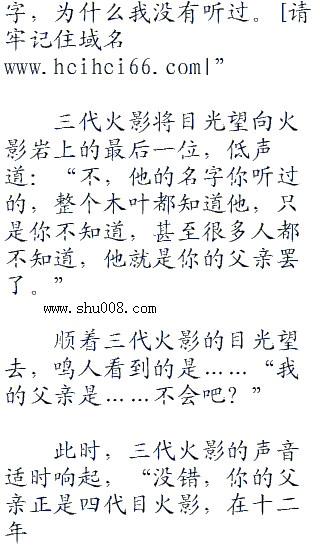 字，为什么我没有听过。[请
牢记住域名
www.hcihci66.com|”
三代火影将目光望向火
影岩上的最后一位，低声
道：“不，他的名字你听过
的，整个木叶都知道他，只
是你不知道，甚至很多人都
不知道，他就是你的父亲罢
了。”
www.shu008.com
顺着三代火影的目光望
去，鸣人看到的是……“我
的父亲是……不会吧？”
此时，三代火影的声音
适时响起，“没错，你的父
亲正是四代目火影，在十二
年